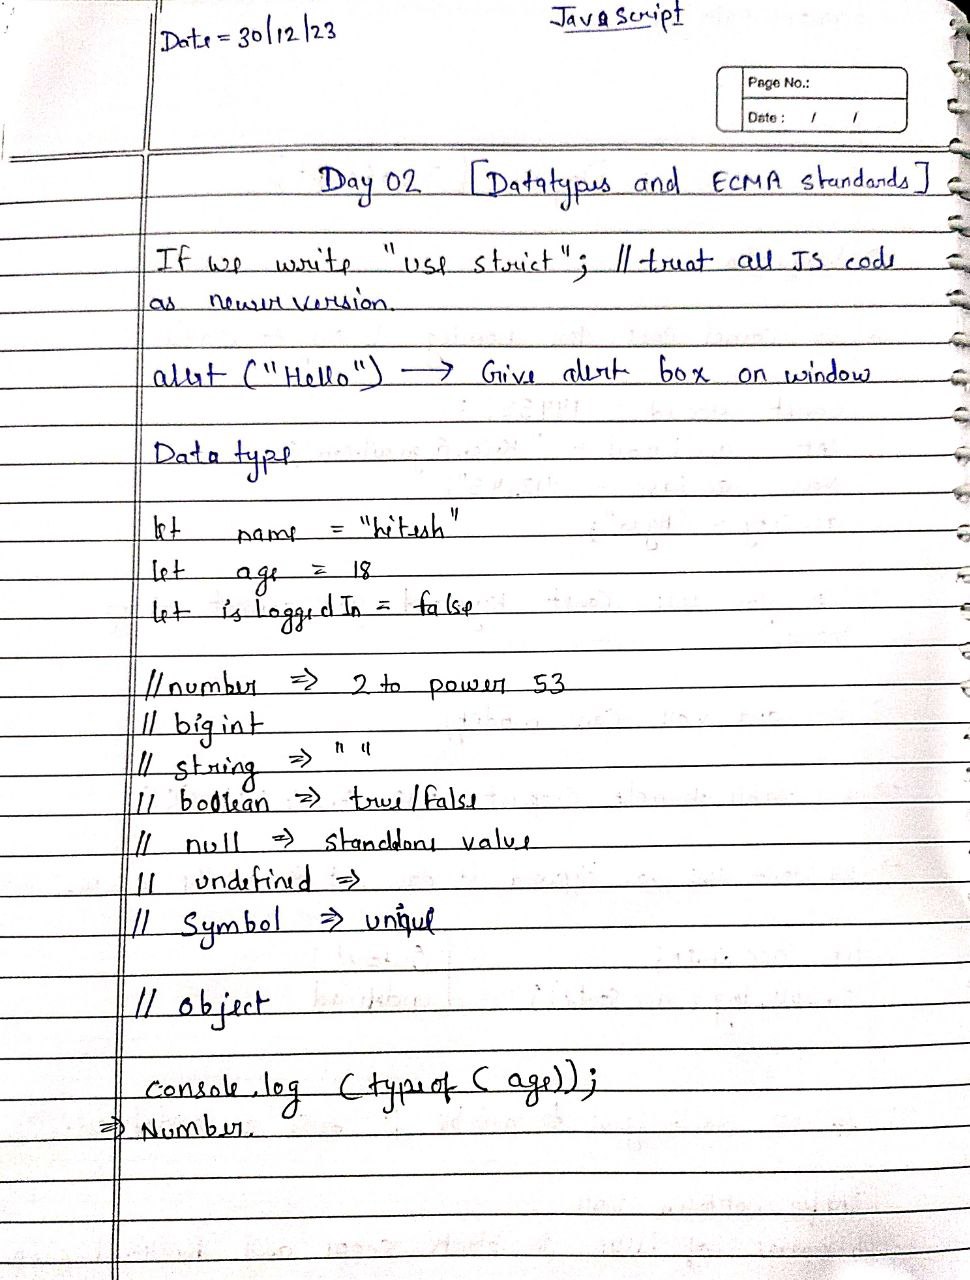 Date = 30/12/23
JavaScript
Page No.:
Date : / /
Day 02 [Datatypes and ECMA standards]
If we write "use strict"; // treat all JS code
as newer version.
alert ("Hello") → Give alert box on window
Data type
let name = "hitesh"
let age = 18
let isLoggedIn = false
// number => 2 to power 53
// bigint
// string => " "
// boolean => true/false
// null => standalone value
// undefined =>
// Symbol => unique
// object
console.log (typeof (age));
=> Number.